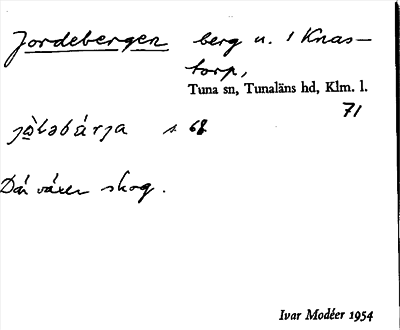 Jordebergen berg u. 1 Knas-
torp,
Tuna sn, Tunaläns hd, Klm. l.
71
s 68
Där växer skog.
Ivar Modéer 1954